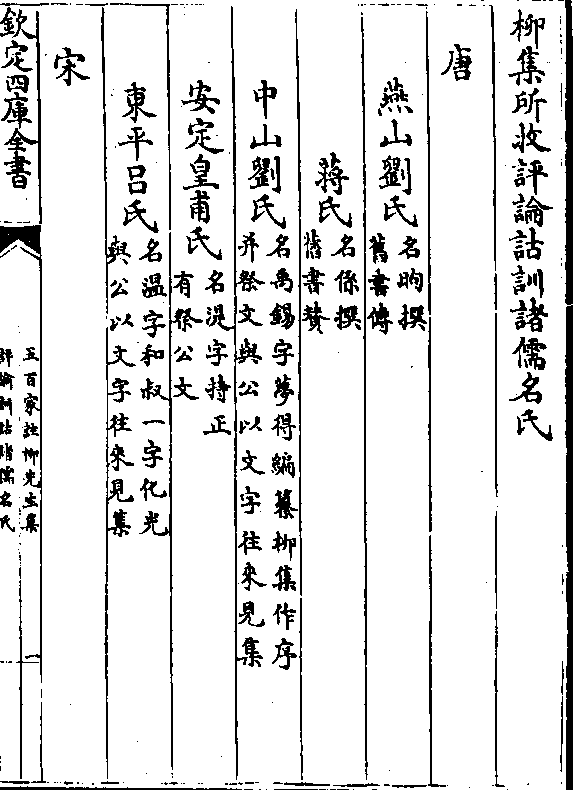 柳集所收評論詁訓諸儒名氏
唐
燕山劉氏 名昫撰 舊書傳
蔣氏 名係撰 舊書贊
中山劉氏 名禹錫字夢得編纂柳集作序 并祭文與公以文字往來見集
安定皇甫氏 名湜字持正 有祭公文
東平呂氏 名溫字和叔一字化光 與公以文字往來見集
宋
欽定四庫全書
五百家註柳先生集
評論訓詁諸儒名氏
一